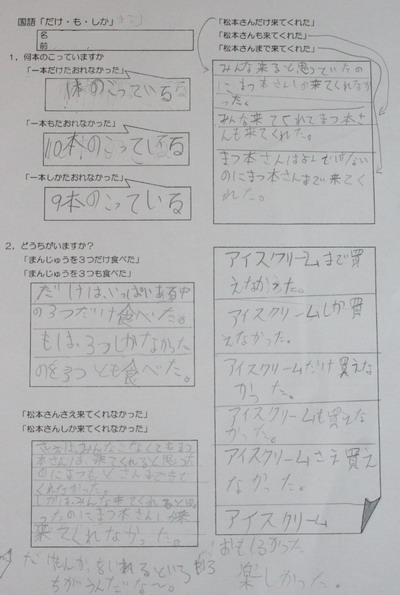 国語「だけ・も・しか」
名
前
1，何本のこっていますか
「一本だけたおれなかった」
1本のこっている
「一本もたおれなかった」
10本のこっている
「一本しかたおれなかった」
9本のこっている
2，どうちがいますか？
「まんじゅうを3つだけ食べた」
「まんじゅうを3つも食べた」
だけは、いっぱいある中
の3つだけ食べた。
もは、3つしかなかった
のを3つとも食べた。
「松本さんさえ来てくれなかった」
「松本さんしか来てくれなかった」
さえはみんなこなくてもまつ
本さんは、来てくれると思った
のにまつもとさんまできて
くれなかった。
しかは、みんな来てくれると思
った。のにまつ本さんしか来
来てくれなかった。
ちがうんだな〜。
「松本さんだけ来てくれた」
「松本さんも来てくれた」
「松本さんまで来てくれた」
みんな来ると思っていたの
にまつ本さんしか来てくれなか
った。
みんな来てくれてまつ本さ
んも来てくれた。
まつ本さんは
のにまつ本さんまで来てく
れた。
アイスクリームまで買
えなかえた。
アイスクリームしか買
えなかった。
アイスクリームだけ買えな
かった。
アイスクリームも買えな
かった。
アイスクリームさえ買え
なかった。
アイスクリーム
おもしろかった
楽しかった。